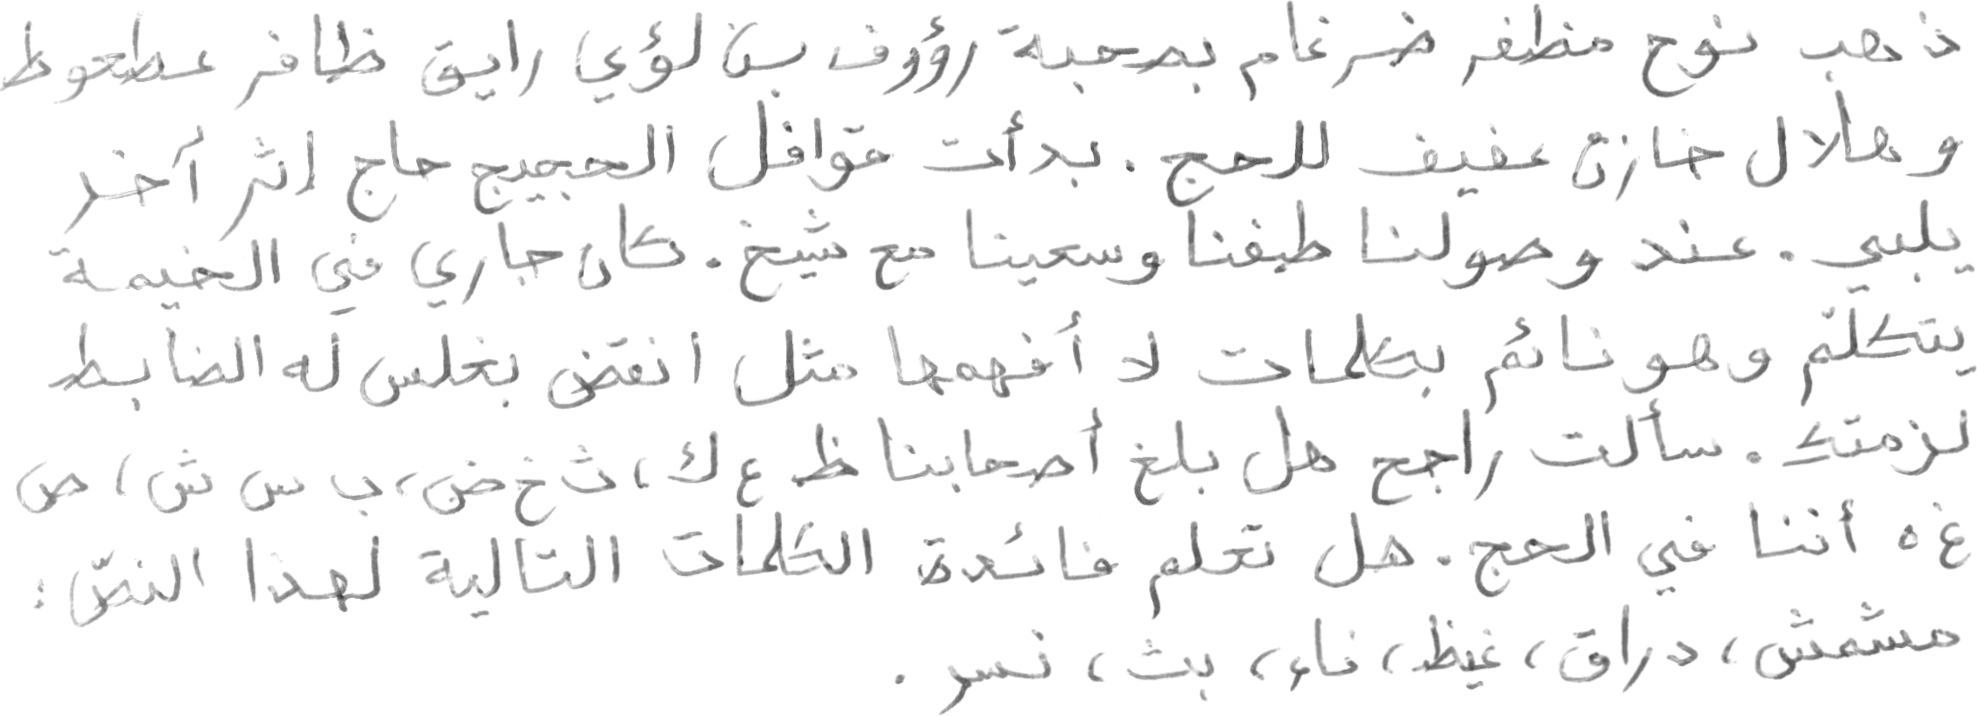 ذهب نوح مظفر ضرغام بصحبة رؤوف بن لؤي رايق ظافر عطعوط
و هلال خازن عفيف للحج. بدأت قوافل الحجيج حاج إثر آخر
يلبي. عند وصولنا طفنا وسعينا مع شيخ. كان جاري في الخيمة
يتكلّم وهو نائم بكلمات لا أفهمها مثل انقض بغلس له الضابط
لزمتك. سألت راجح هل بلغ أصحابنا ظ ع ك، ث خ ض، ب س ش، ص
غ ه أننا في الحج. هل تعلم فائدة الكلمات التالية لهذا النصّ:
مشمش، دراق، غيظ، ناء، بث، نسر.